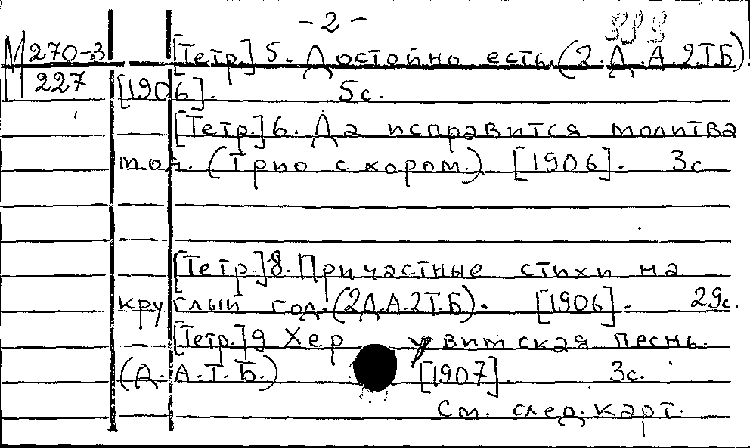 - 2 -
М 270-3 [Тетр.] 5. Достойно есть. (2.Д.А.2ТБ).
227 [1906]. 5с.
[Тетр.] 6. Да исправится молитва
моя. (Трио с хором.) [1906]. 3с
[Тетр.] 8. Причастные стихи на
круглый год. (2Д.А.2Т.Б). [1906]. 29с.
[Тетр.] 9 Херувимская песнь.
(Д.А.Т.Б.) [1907]. 3с.
См. след. карт.